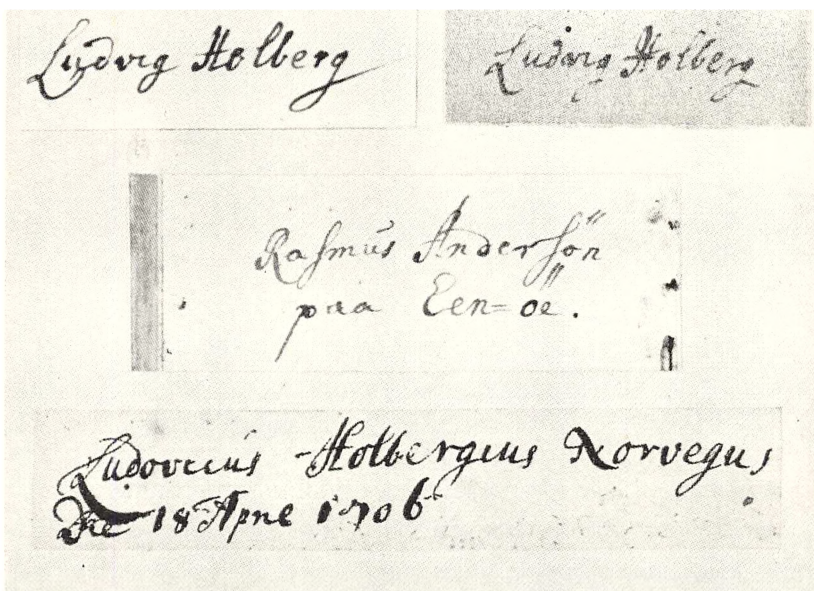 Ludvig Holberg
Ludvig Holberg
Rasmus Andersön
paa Een=öe.
Ludovicus Holbergius Norvegus
Die 18 Aprie 1706